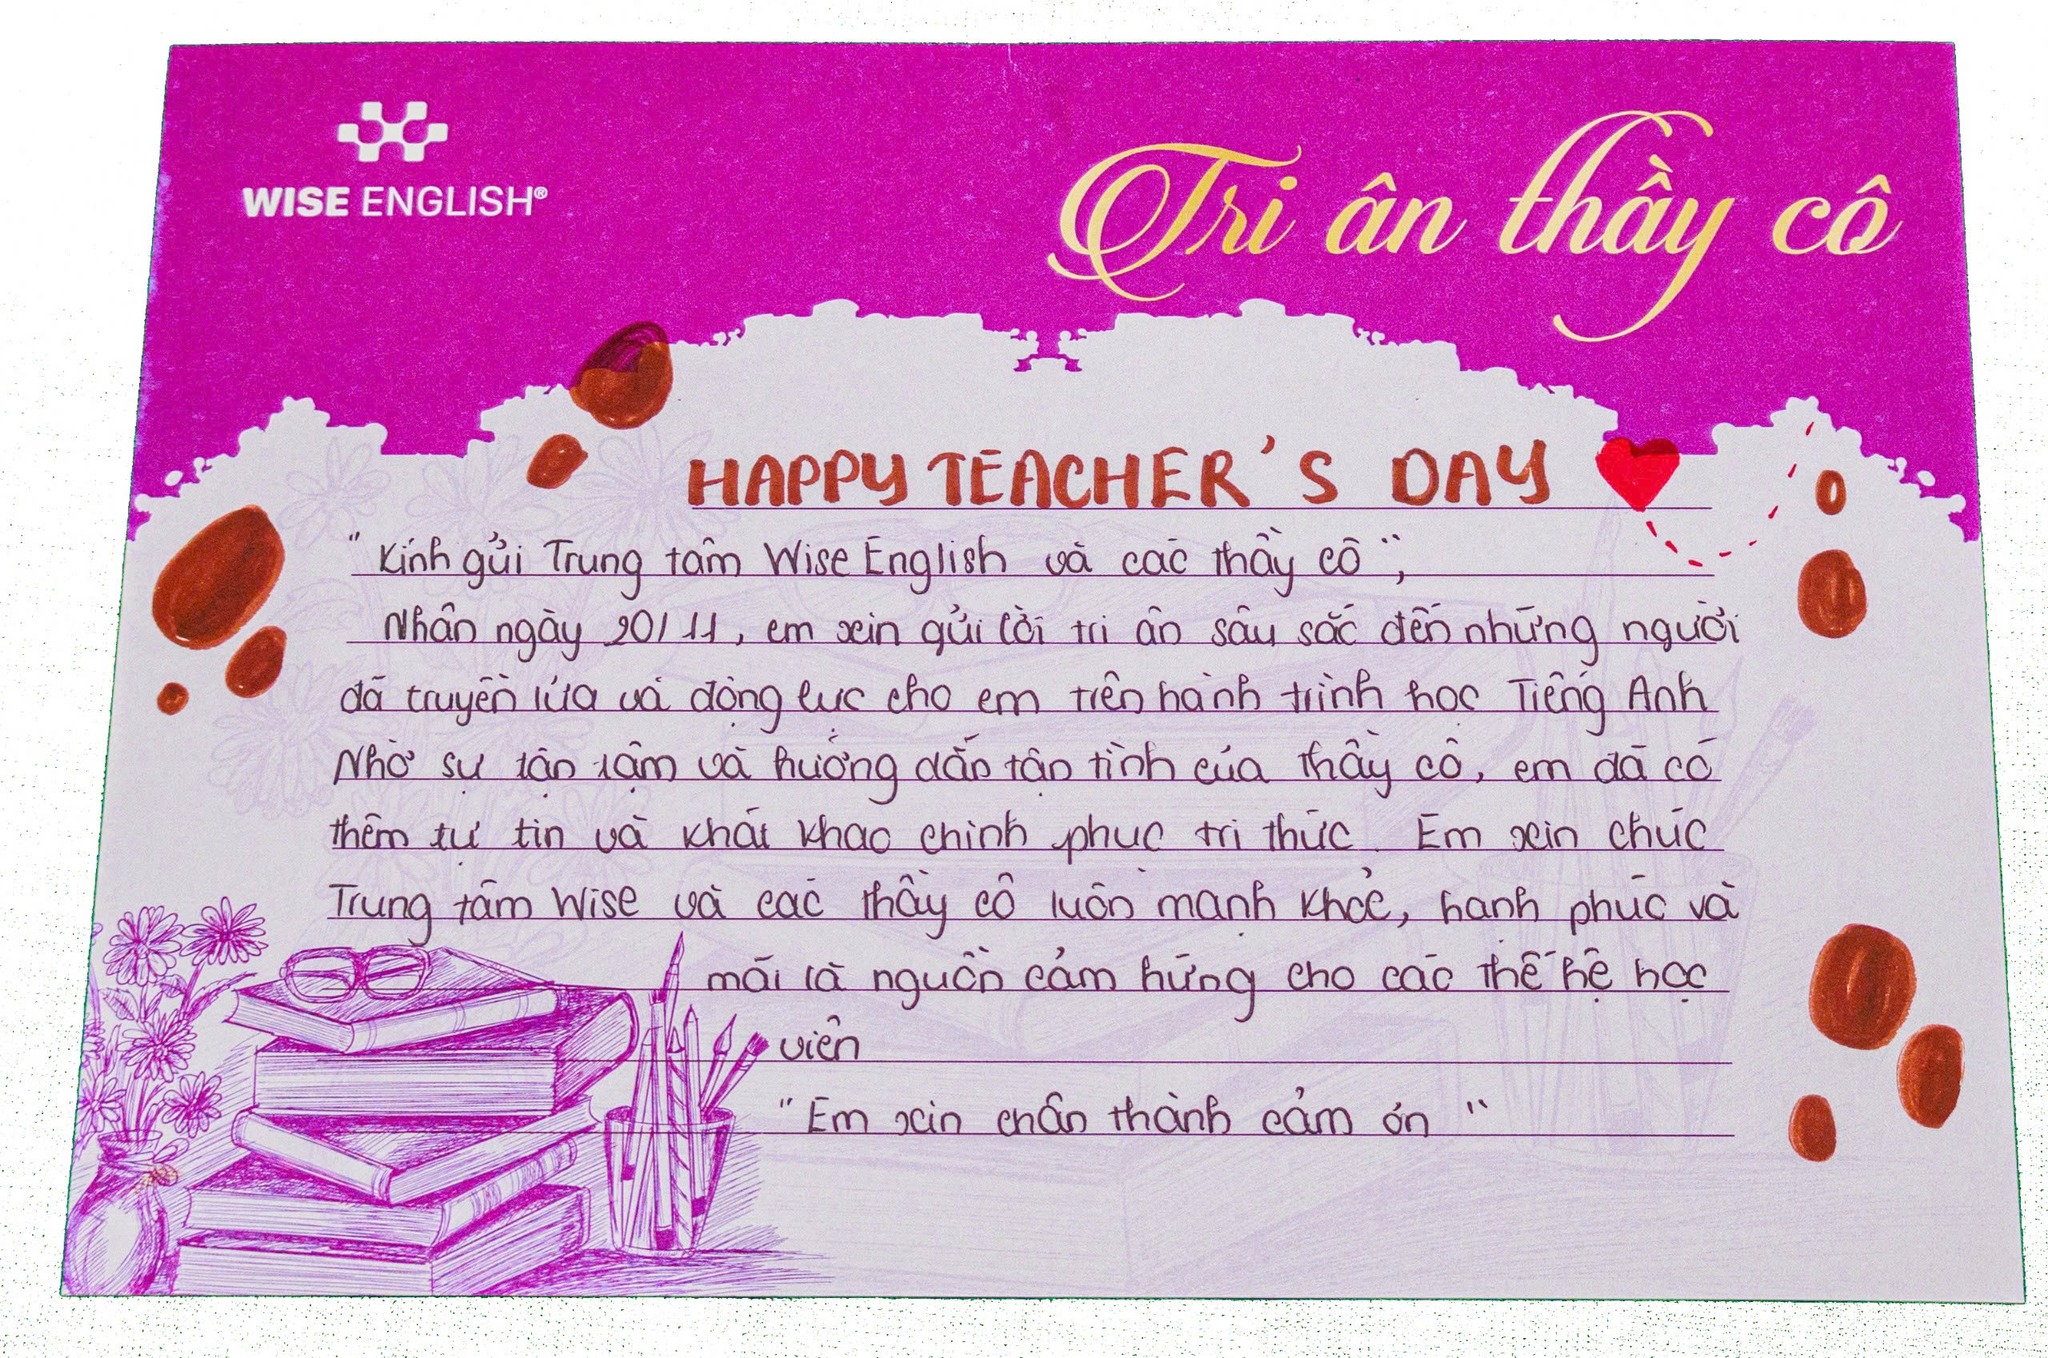 WISE ENGLISH®
Tri ân thầy cô
HAPPY TEACHER'S DAY
"Kính gửi Trung tâm Wise English và các thầy cô",
Nhân ngày 20/11, em xin gửi lời tri ân sâu sắc đến những người
đã truyền lửa và động lực cho em trên hành trình học Tiếng Anh
Nhờ sự tận tâm và hướng dẫn tận tình của thầy cô, em đã có
thêm tự tin và khát khao chinh phục tri thức. Em xin chúc
Trung tâm Wise và các thầy cô luôn mạnh khỏe, hạnh phúc và
mãi là nguồn cảm hứng cho các thế hệ học
viên
"Em xin chân thành cảm ơn"